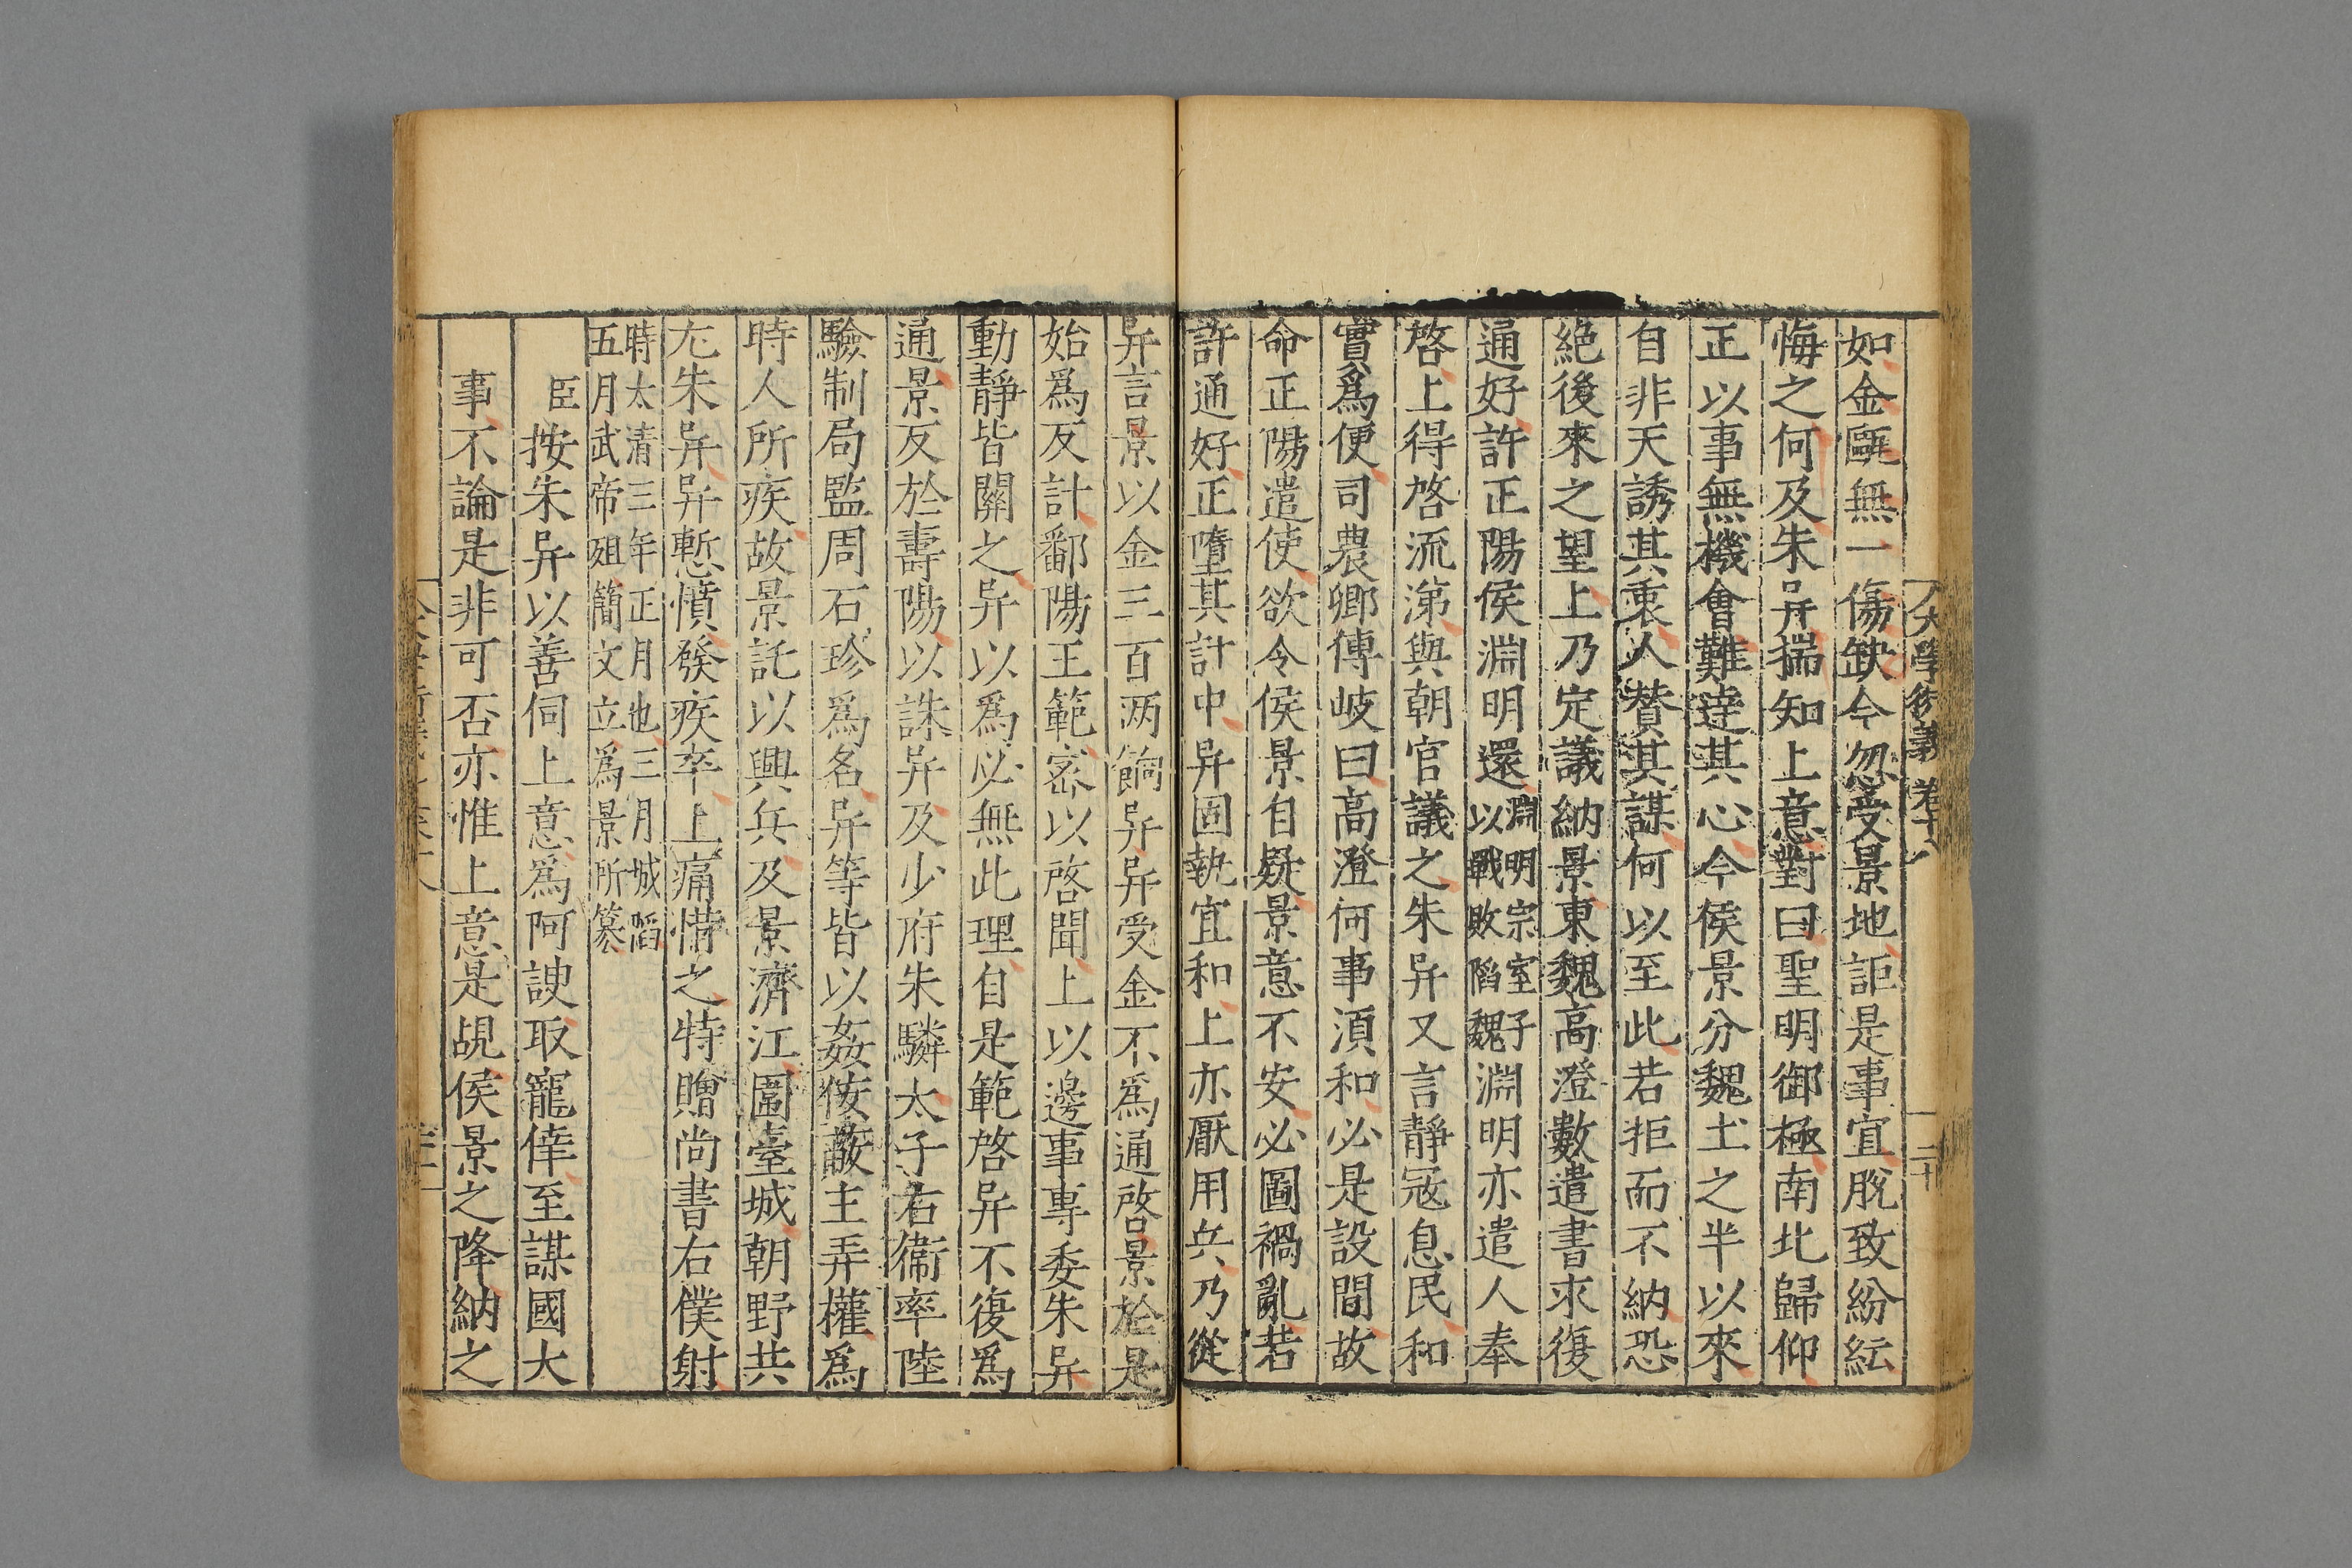 如金甌無一傷缺今忽受景地詎是事宜脫致紛紜
悔之何及朱异揣知上意對曰聖明御極南北歸仰
正以事無機會難逹其心今侯景分魏土之半以來
自非天誘其衷人賛其謀何以至此若拒而不納恐
絶後來之望上乃定議納景東魏高澄數遣書求復
通好許正陽侯淵明還淵明宗室子以戰敗䧟魏淵明亦遣人奉
啓上得啓流涕與朝官議之朱异又言靜冦息民和
實爲便司農卿傅岐曰高澄何事湏和必是設間故
命正陽遣使欲令侯景自疑景意不安必圖禍亂若
許通好正墮其計中异固執宜和上亦厭用兵乃從
异言景以金三百两餉异异受金不爲通啓景於是
始爲反計鄱陽王範宻以啓聞上以邊事專委朱异
動靜皆關之异以爲必無此理自是範啓异不復爲
通景反於壽陽以誅异及少府朱驎太子右衞率陸
驗制局監周石珍爲名异等皆以姦侫蔽主弄權爲
時人所疾故景託以興兵及景濟江圍臺城朝野共
尤朱异异慙憤發疾卒上痛惜之特贈尚書右僕射
時太清三年正月也三月城䧟
五月武帝殂簡文立爲景所簒
臣按朱异以善伺上意爲阿諛取寵倖至謀國大
事不論是非可否亦惟上意是覘侯景之降納之
大學衍義 卷十八
二十